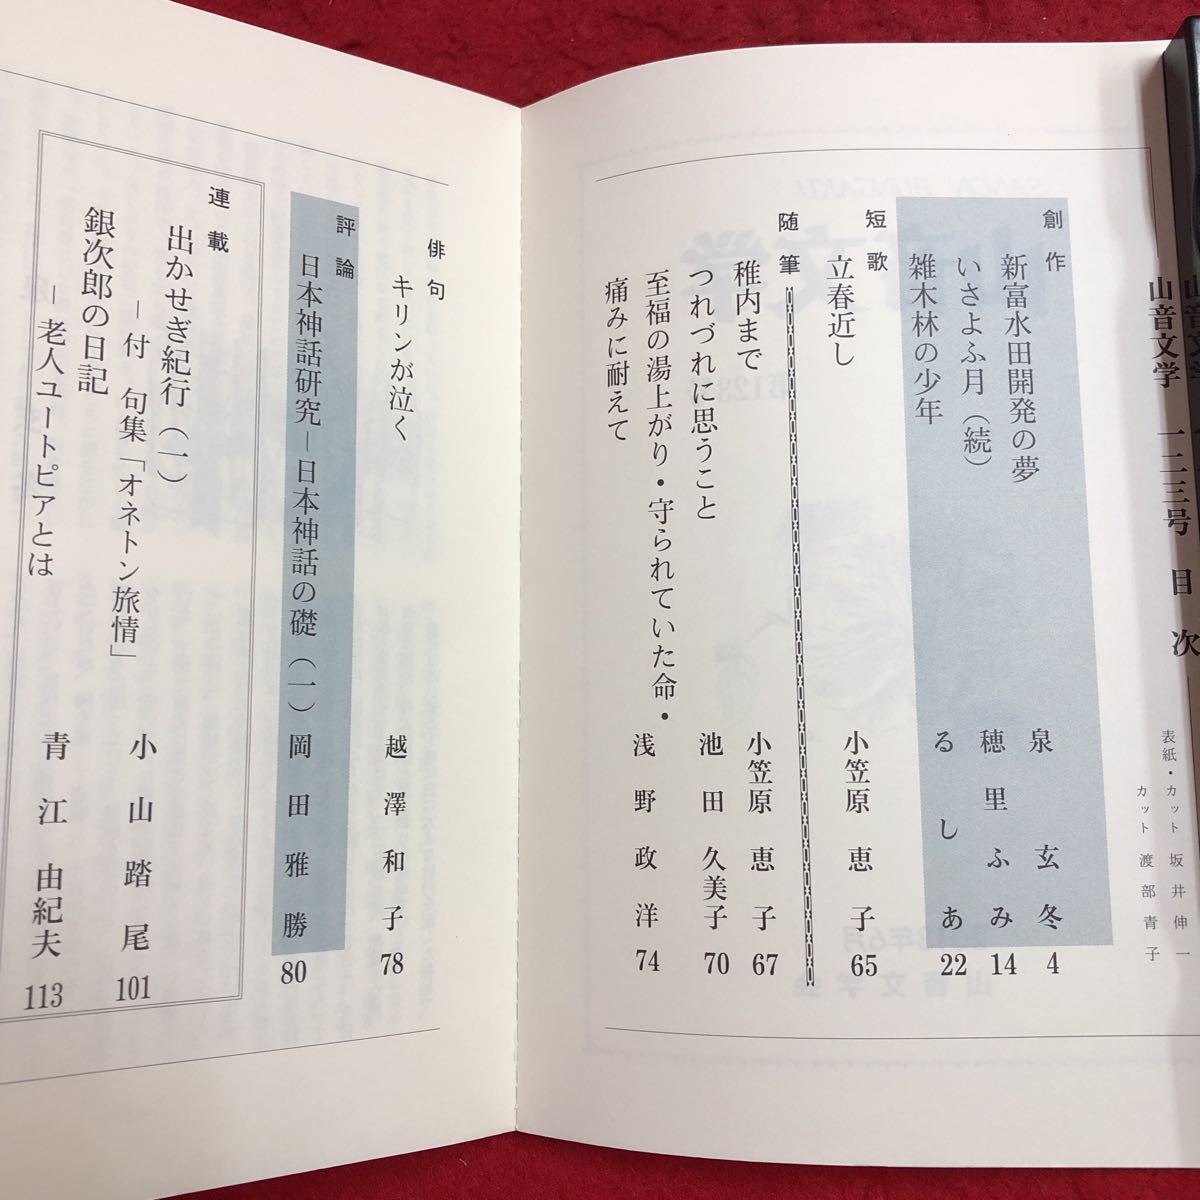 山音文学 一二三号 目次
表紙・カット 坂井伸一
カット 渡部青子
創作
新富水田開発の夢 泉玄冬 4
いさよふ月(続) 穂里ふみ 14
雑木林の少年 るしあ 22
短歌
立春近し 小笠原恵子 65
随筆
稚内まで 小笠原恵子 67
つれづれに思うこと 池田久美子 70
至福の湯上がり・守られていた命・
痛みに耐えて 浅野政洋 74
俳句
キリンが泣く 越澤和子 78
評論
日本神話研究―日本神話の礎(一) 岡田雅勝 80
連載
出かせぎ紀行(一)
―付 句集「オネトン旅情」 小山踏尾 101
銀次郎の日記
―老人ユートピアとは 青江由紀夫 113